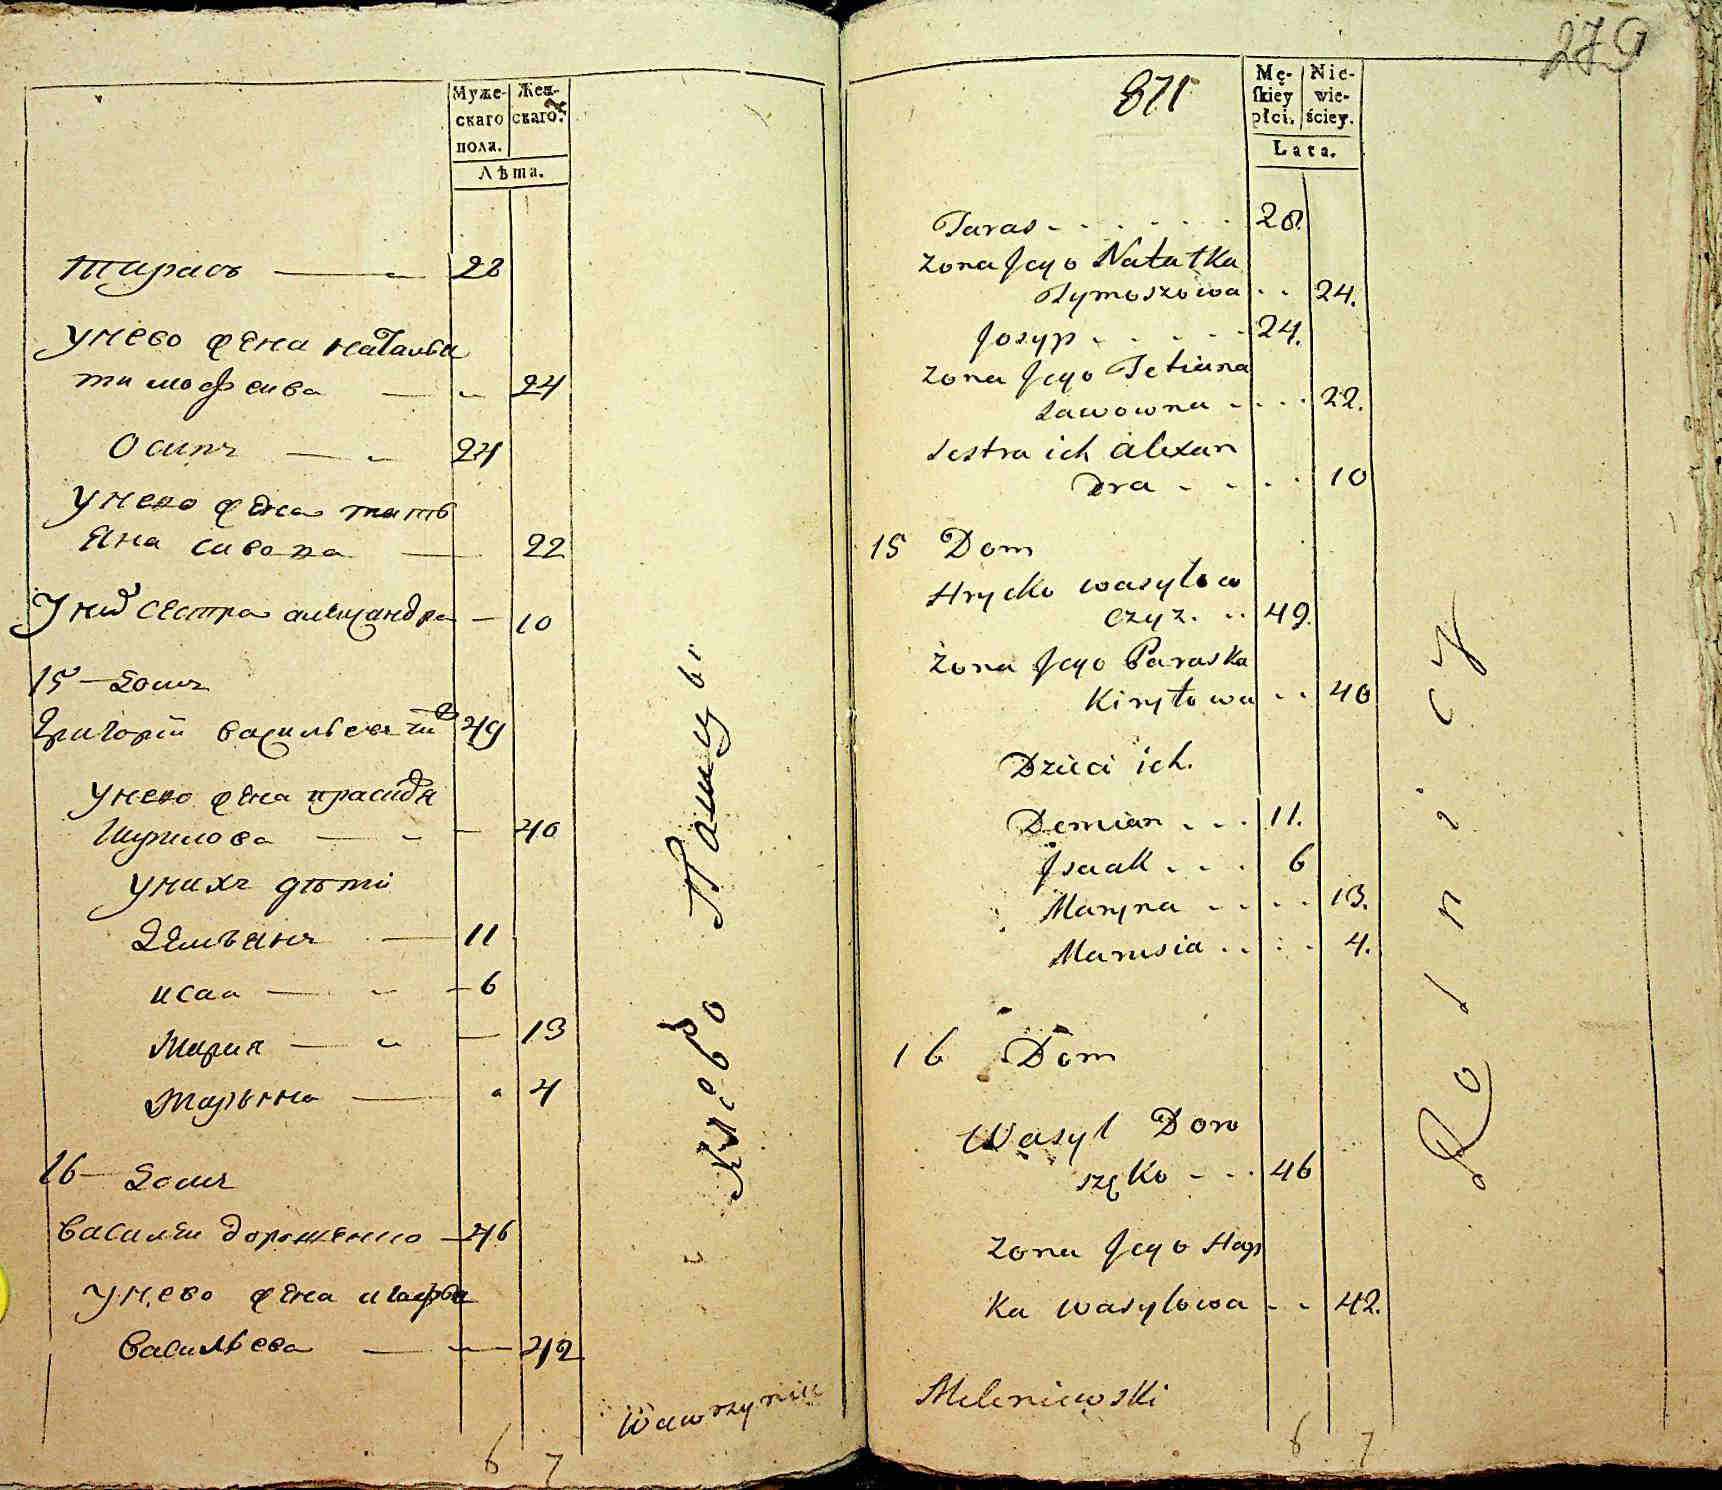 Муже-
скаго
пола.
Жен-
скаго.
Лѣта.
Тарасъ 28
унево жена наталья
тимофеива 24
Осипъ 24
унево жена тать
яна савова 22
Уних сестра александра 10
15 Домъ
Григорiй васильевъ 49
унево жена
Кирилова 40
унихъ дѣти
Демъянъ 11
исаа 6
Мария 13
Марына 4
16 Домъ
Василей дорошенко 46
унево жена
Васильева 42
6 7
Хлебо Пашцы
Wawrzyniec
279
871
Mę-
skiey
płci.
Nie-
wie-
ściey.
Lata.
Taras 28.
Zona Jego Natałka
Tymoszowa 24.
Josyp 24.
Zona Jego Tetiana
Sawowna 22.
Sestra ich alexan
Dra 10
15 Dom
Hrycko wasylow
czyz. 49.
Zona Jego Paraska
Kiryłowa 40
Dzieci ich.
Demian 11.
Jsaak 6
Maryna 13.
Marusia 4.
16 Dom
Wasyl Doro
szęko 46
Zona Jego Hap
Ka wasylowa 42.
Meleniewski
6 7
Rolnicy